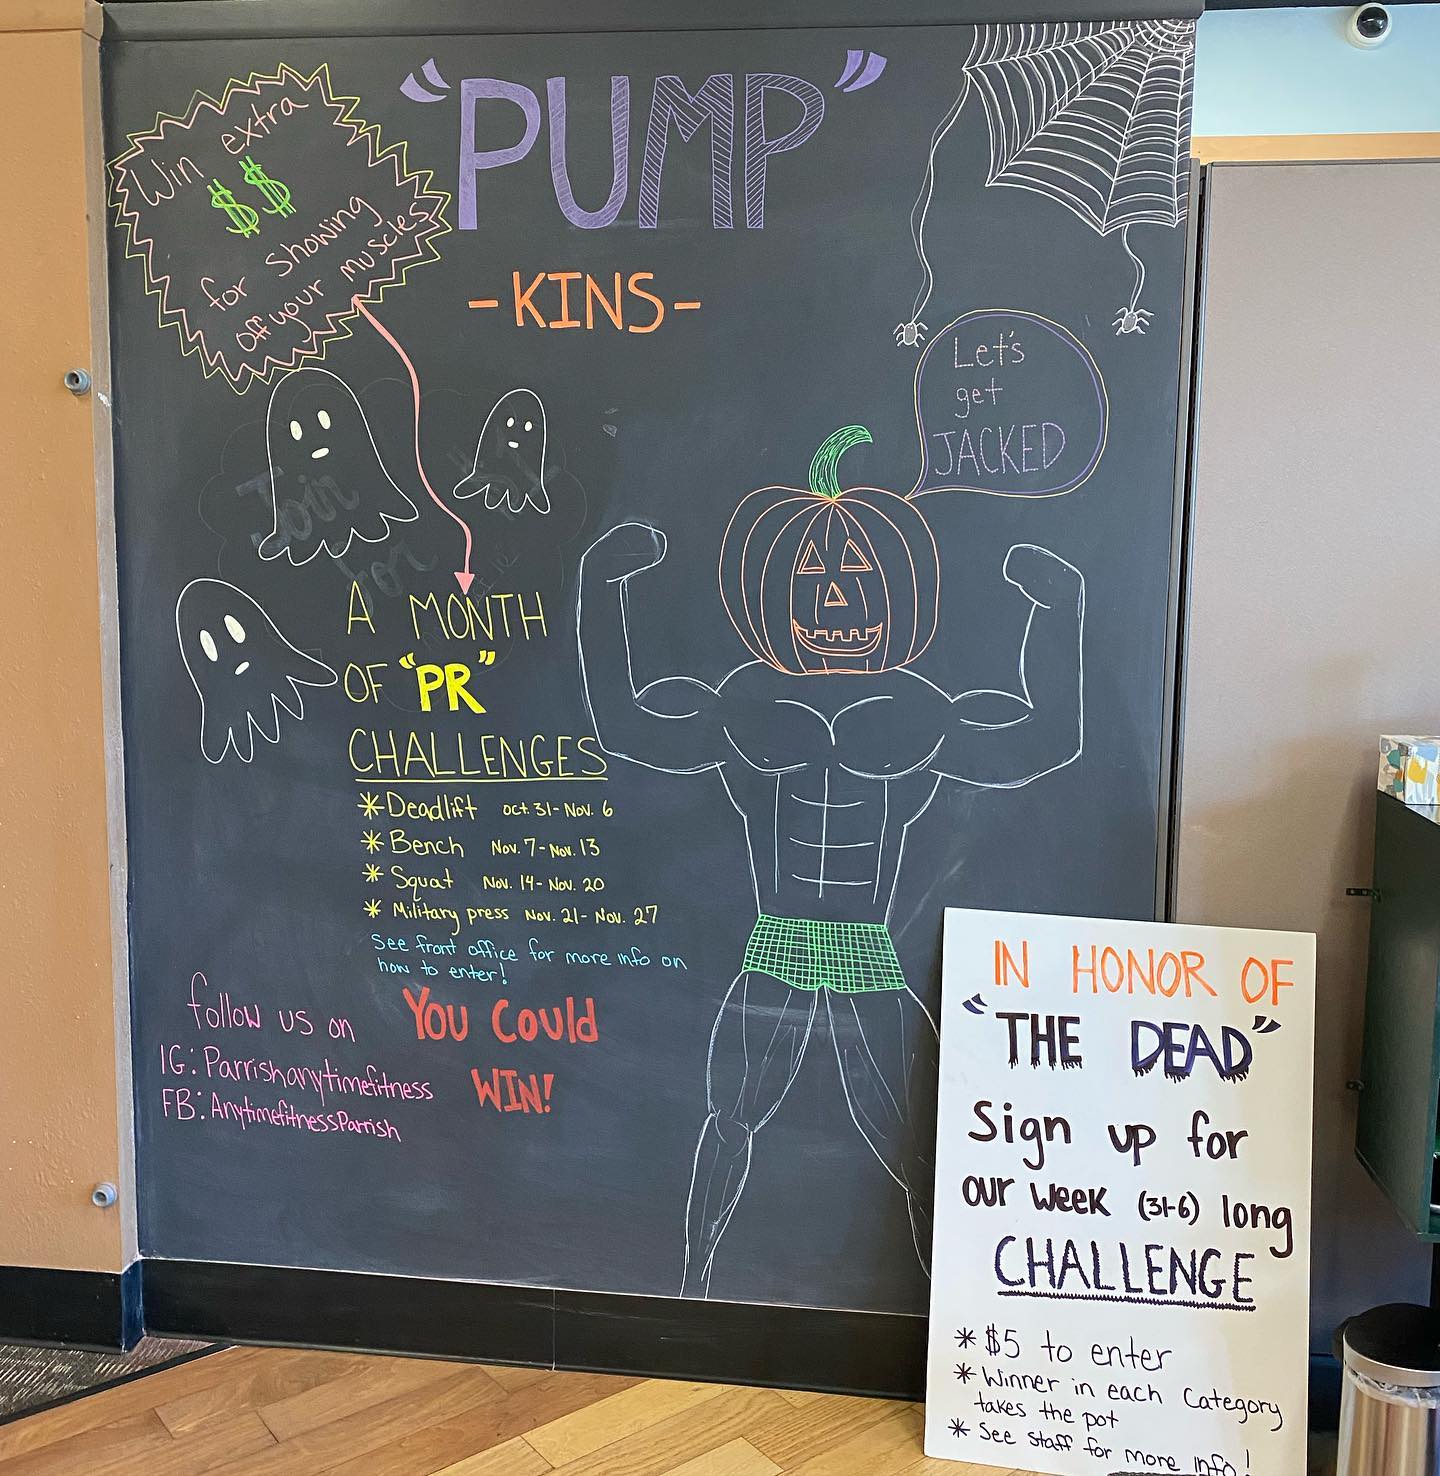 "PUMP"
-KINS-
Win extra
$$
for showing
off your muscles
Let's
get
JACKED
Join
for
A MONTH
OF "PR"
CHALLENGES
* Deadlift Oct. 31- Nov. 6
* Bench Nov. 7- Nov. 13
* Squat Nov. 14- Nov. 20
* Military press Nov. 21- Nov. 27
See front office for more info on
how to enter!
You Could
WIN!
follow us on
IG: Parrishanytimefitness
FB: AnytimefitnessParrish
IN HONOR OF
"THE DEAD"
Sign up for
our week (31-6) long
CHALLENGE
* $5 to enter
* Winner in each Category
takes the pot
* See staff for more info!